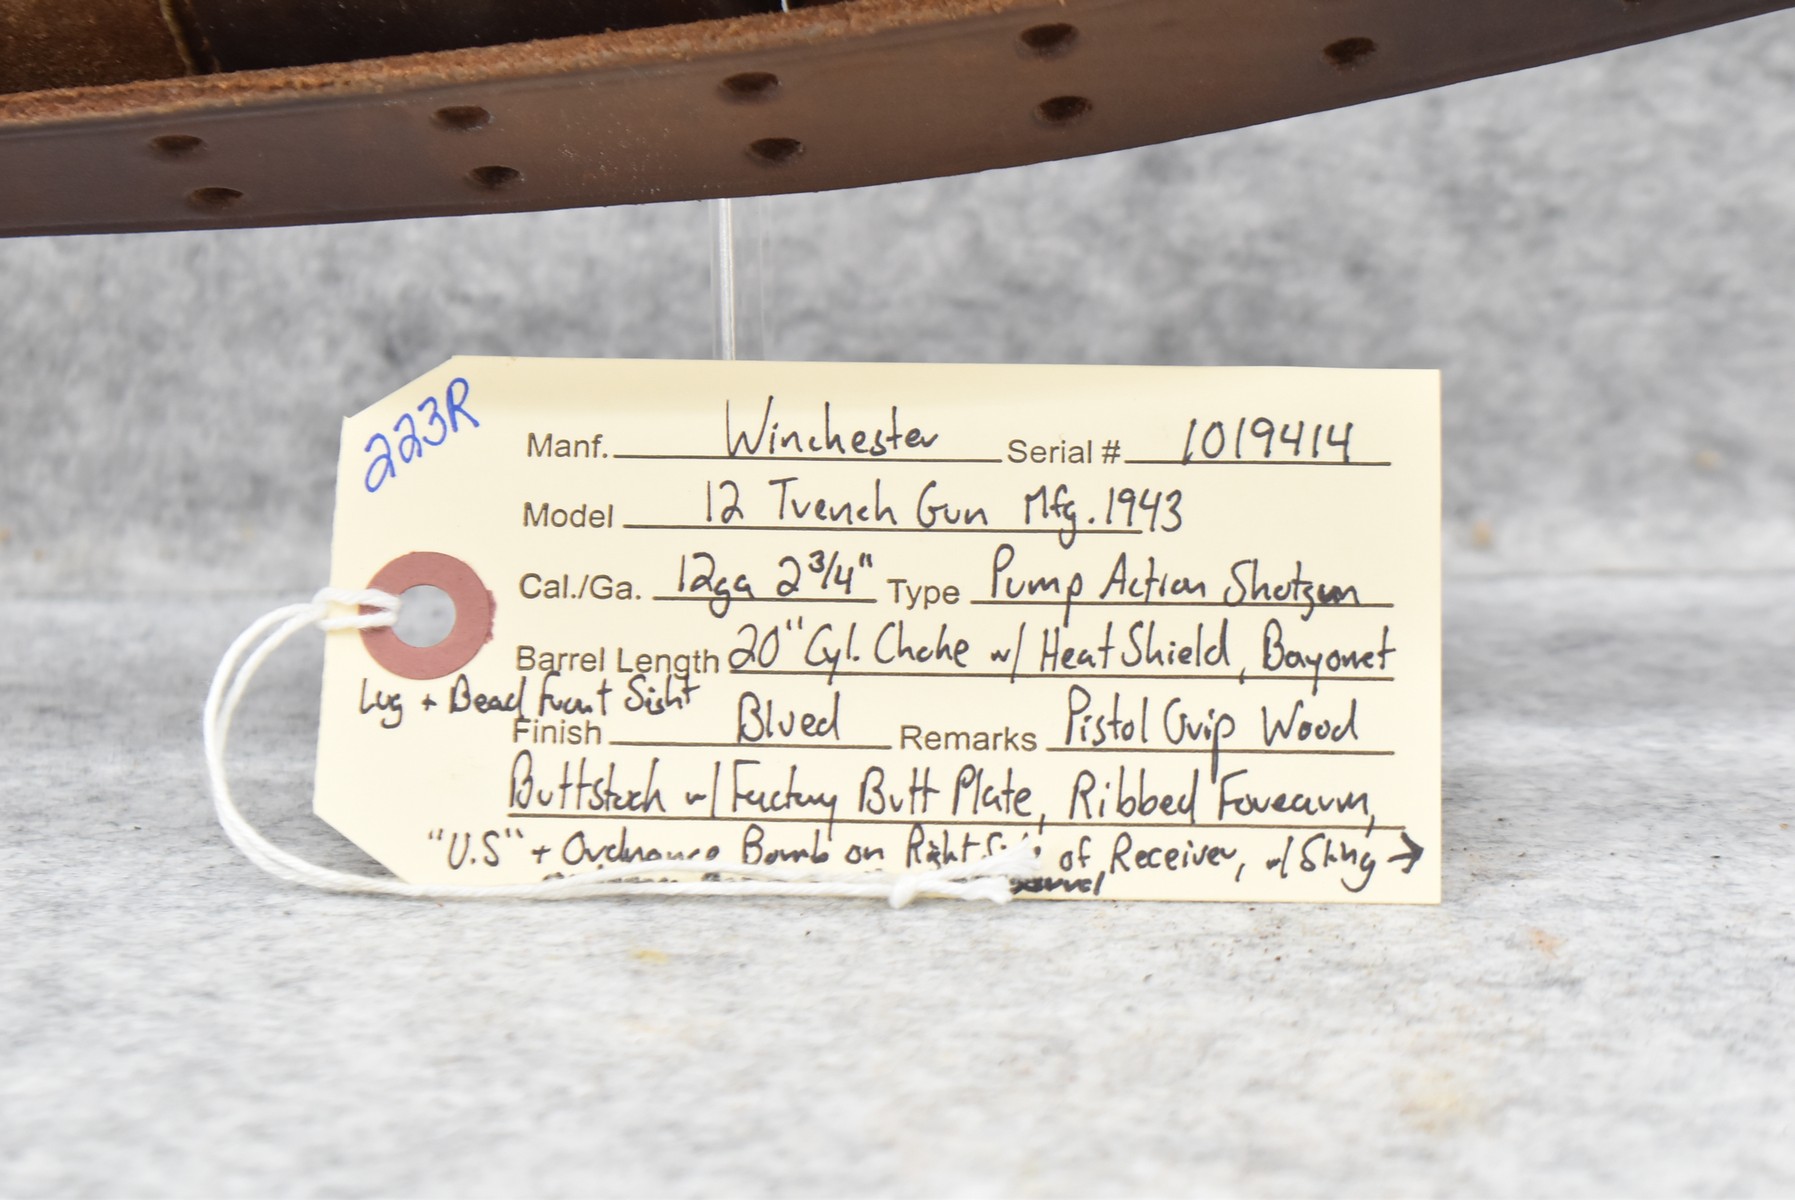 223R
Manf. Winchester Serial # 1019414
Model 12 Trench Gun Mfg. 1943
Cal./Ga. 12ga 2 3/4" Type Pump Action Shotgun
Barrel Length 20" Cyl. Choke w/ Heat Shield, Bayonet
Lug + Bead Front Sight
Finish Blued Remarks Pistol Grip Wood
Buttstock w/ Factory Butt Plate, Ribbed Forearm,
"U.S" + Ordnance Bomb on Right Side of Receiver, w/ Sling →